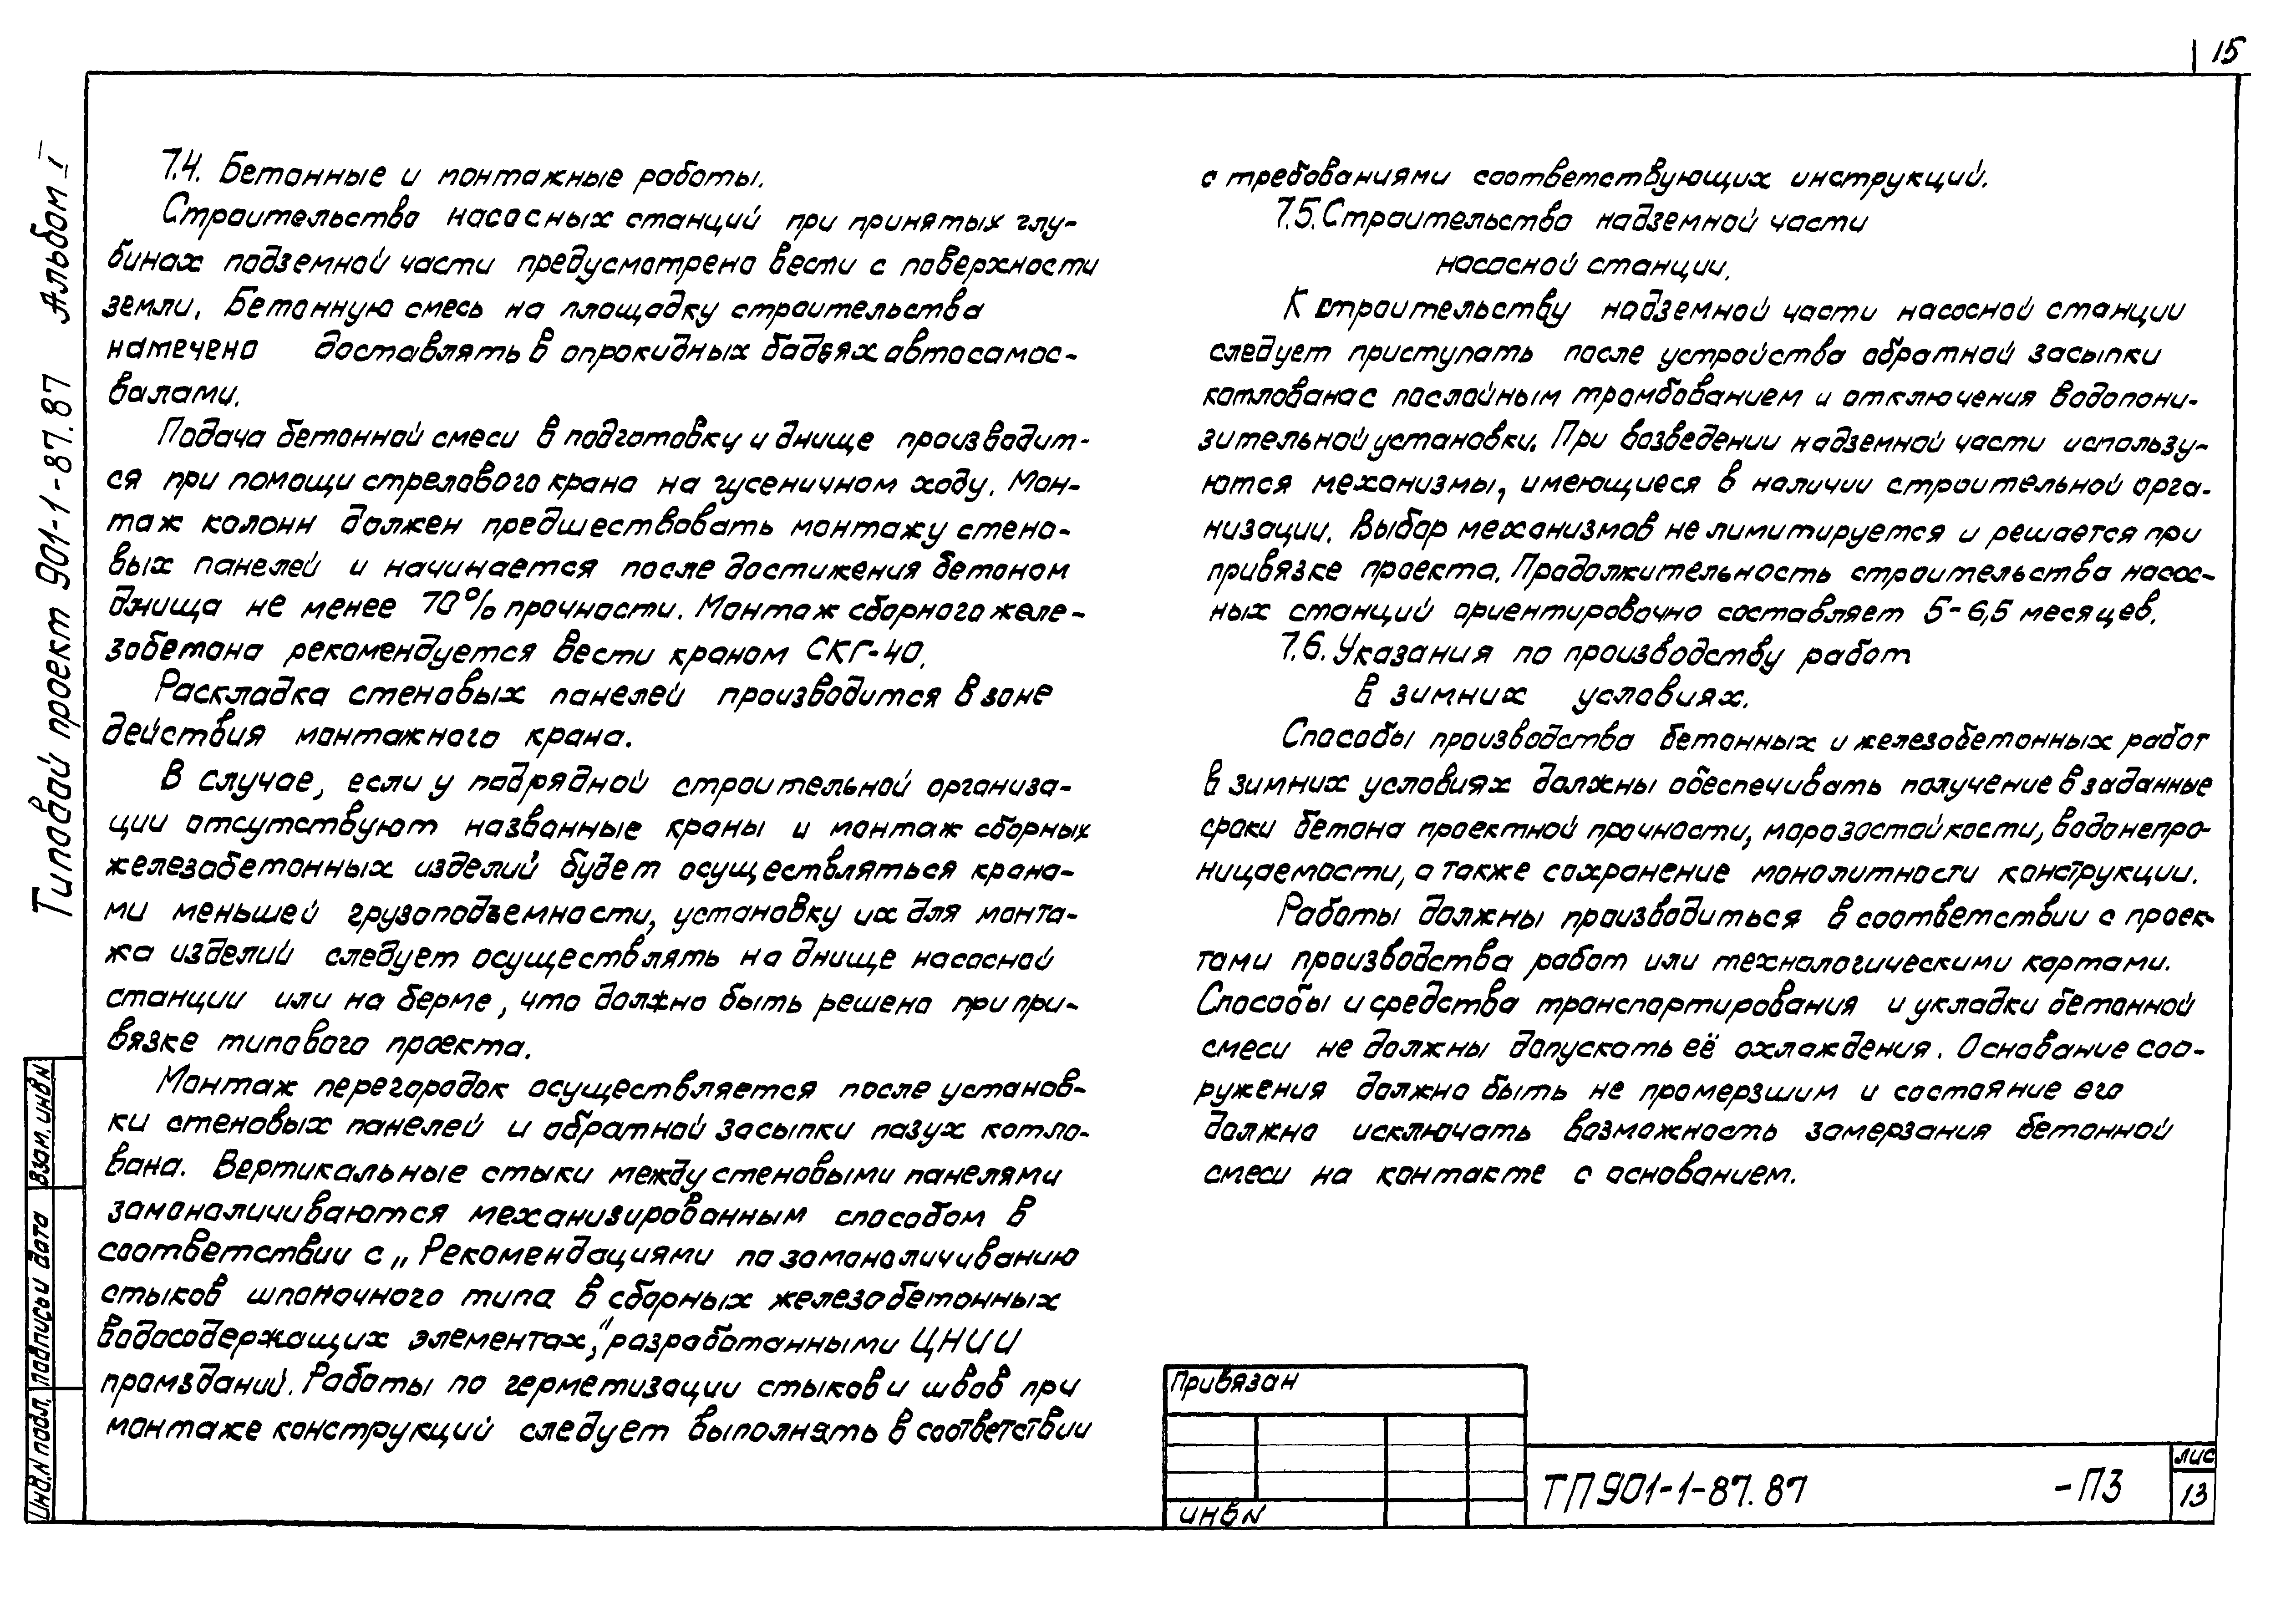 15
7.4. Бетонные и монтажные работы.
Строительство насосных станций при принятых глу-
бинах подземной части предусмотрено вести с поверхности
земли. Бетонную смесь на площадку строительства
намечено доставлять в опрокидных бадьях автосамос-
валами.
Подача бетонной смеси в подготовку и днище производит-
ся при помощи стрелового крана на гусеничном ходу. Мон-
таж колонн должен предшествовать монтажу стено-
вых панелей и начинается после достижения бетоном
днища не менее 70% прочности. Монтаж сборного желе-
зобетона рекомендуется вести краном СКГ-40.
Раскладка стеновых панелей производится в зоне
действия монтажного крана.
В случае, если у подрядной строительной организа-
ции отсутствуют названные краны и монтаж сборных
железобетонных изделий будет осуществляться крана-
ми меньшей грузоподъемности, установку их для монта-
жа изделий следует осуществлять на днище насосной
станции или на берме, что должно быть решено при при-
вязке типового проекта.
Монтаж перегородок осуществляется после установ-
ки стеновых панелей и обратной засыпки пазух котло-
вана. Вертикальные стыки между стеновыми панелями
замоноличиваются механизированным способом в
соответствии с „Рекомендациями по замоноличиванию
стыков шпоночного типа в сборных железобетонных
водосодержащих элементах," разработанными ЦНИИ
промзданий. Работы по герметизации стыков и швов при
монтаже конструкций следует выполнять в соответствии
с требованиями соответствующих инструкций.
7.5. Строительство надземной части
насосной станции.
К строительству надземной части насосной станции
следует приступать после устройства обратной засыпки
котлована с послойным трамбованием и отключения водопони-
зительной установки. При возведении надземной части использу-
ются механизмы, имеющиеся в наличии строительной орга-
низации. Выбор механизмов не лимитируется и решается при
привязке проекта. Продолжительность строительства насос-
ных станций ориентировочно составляет 5-6,5 месяцев.
7.6. Указания по производству работ
в зимних условиях.
Способы производства бетонных и железобетонных работ
в зимних условиях должны обеспечивать получение в заданные
сроки бетона проектной прочности, морозостойкости, водонепро-
ницаемости, а также сохранение монолитности конструкции.
Работы должны производиться в соответствии с проек-
тами производства работ или технологическими картами.
Способы и средства транспортирования и укладки бетонной
смеси не должны допускать её охлаждения. Основание соо-
ружения должно быть не промерзшим и состояние его
должно исключать возможность замерзания бетонной
смеси на контакте с основанием.
Типовой проект 901-1-87.87 Альбом I
Взам. инв N
Подпись и дата
Инв. N подл.
Привязан
Инв N
ТП 901-1-87.87 -ПЗ
Лис
13